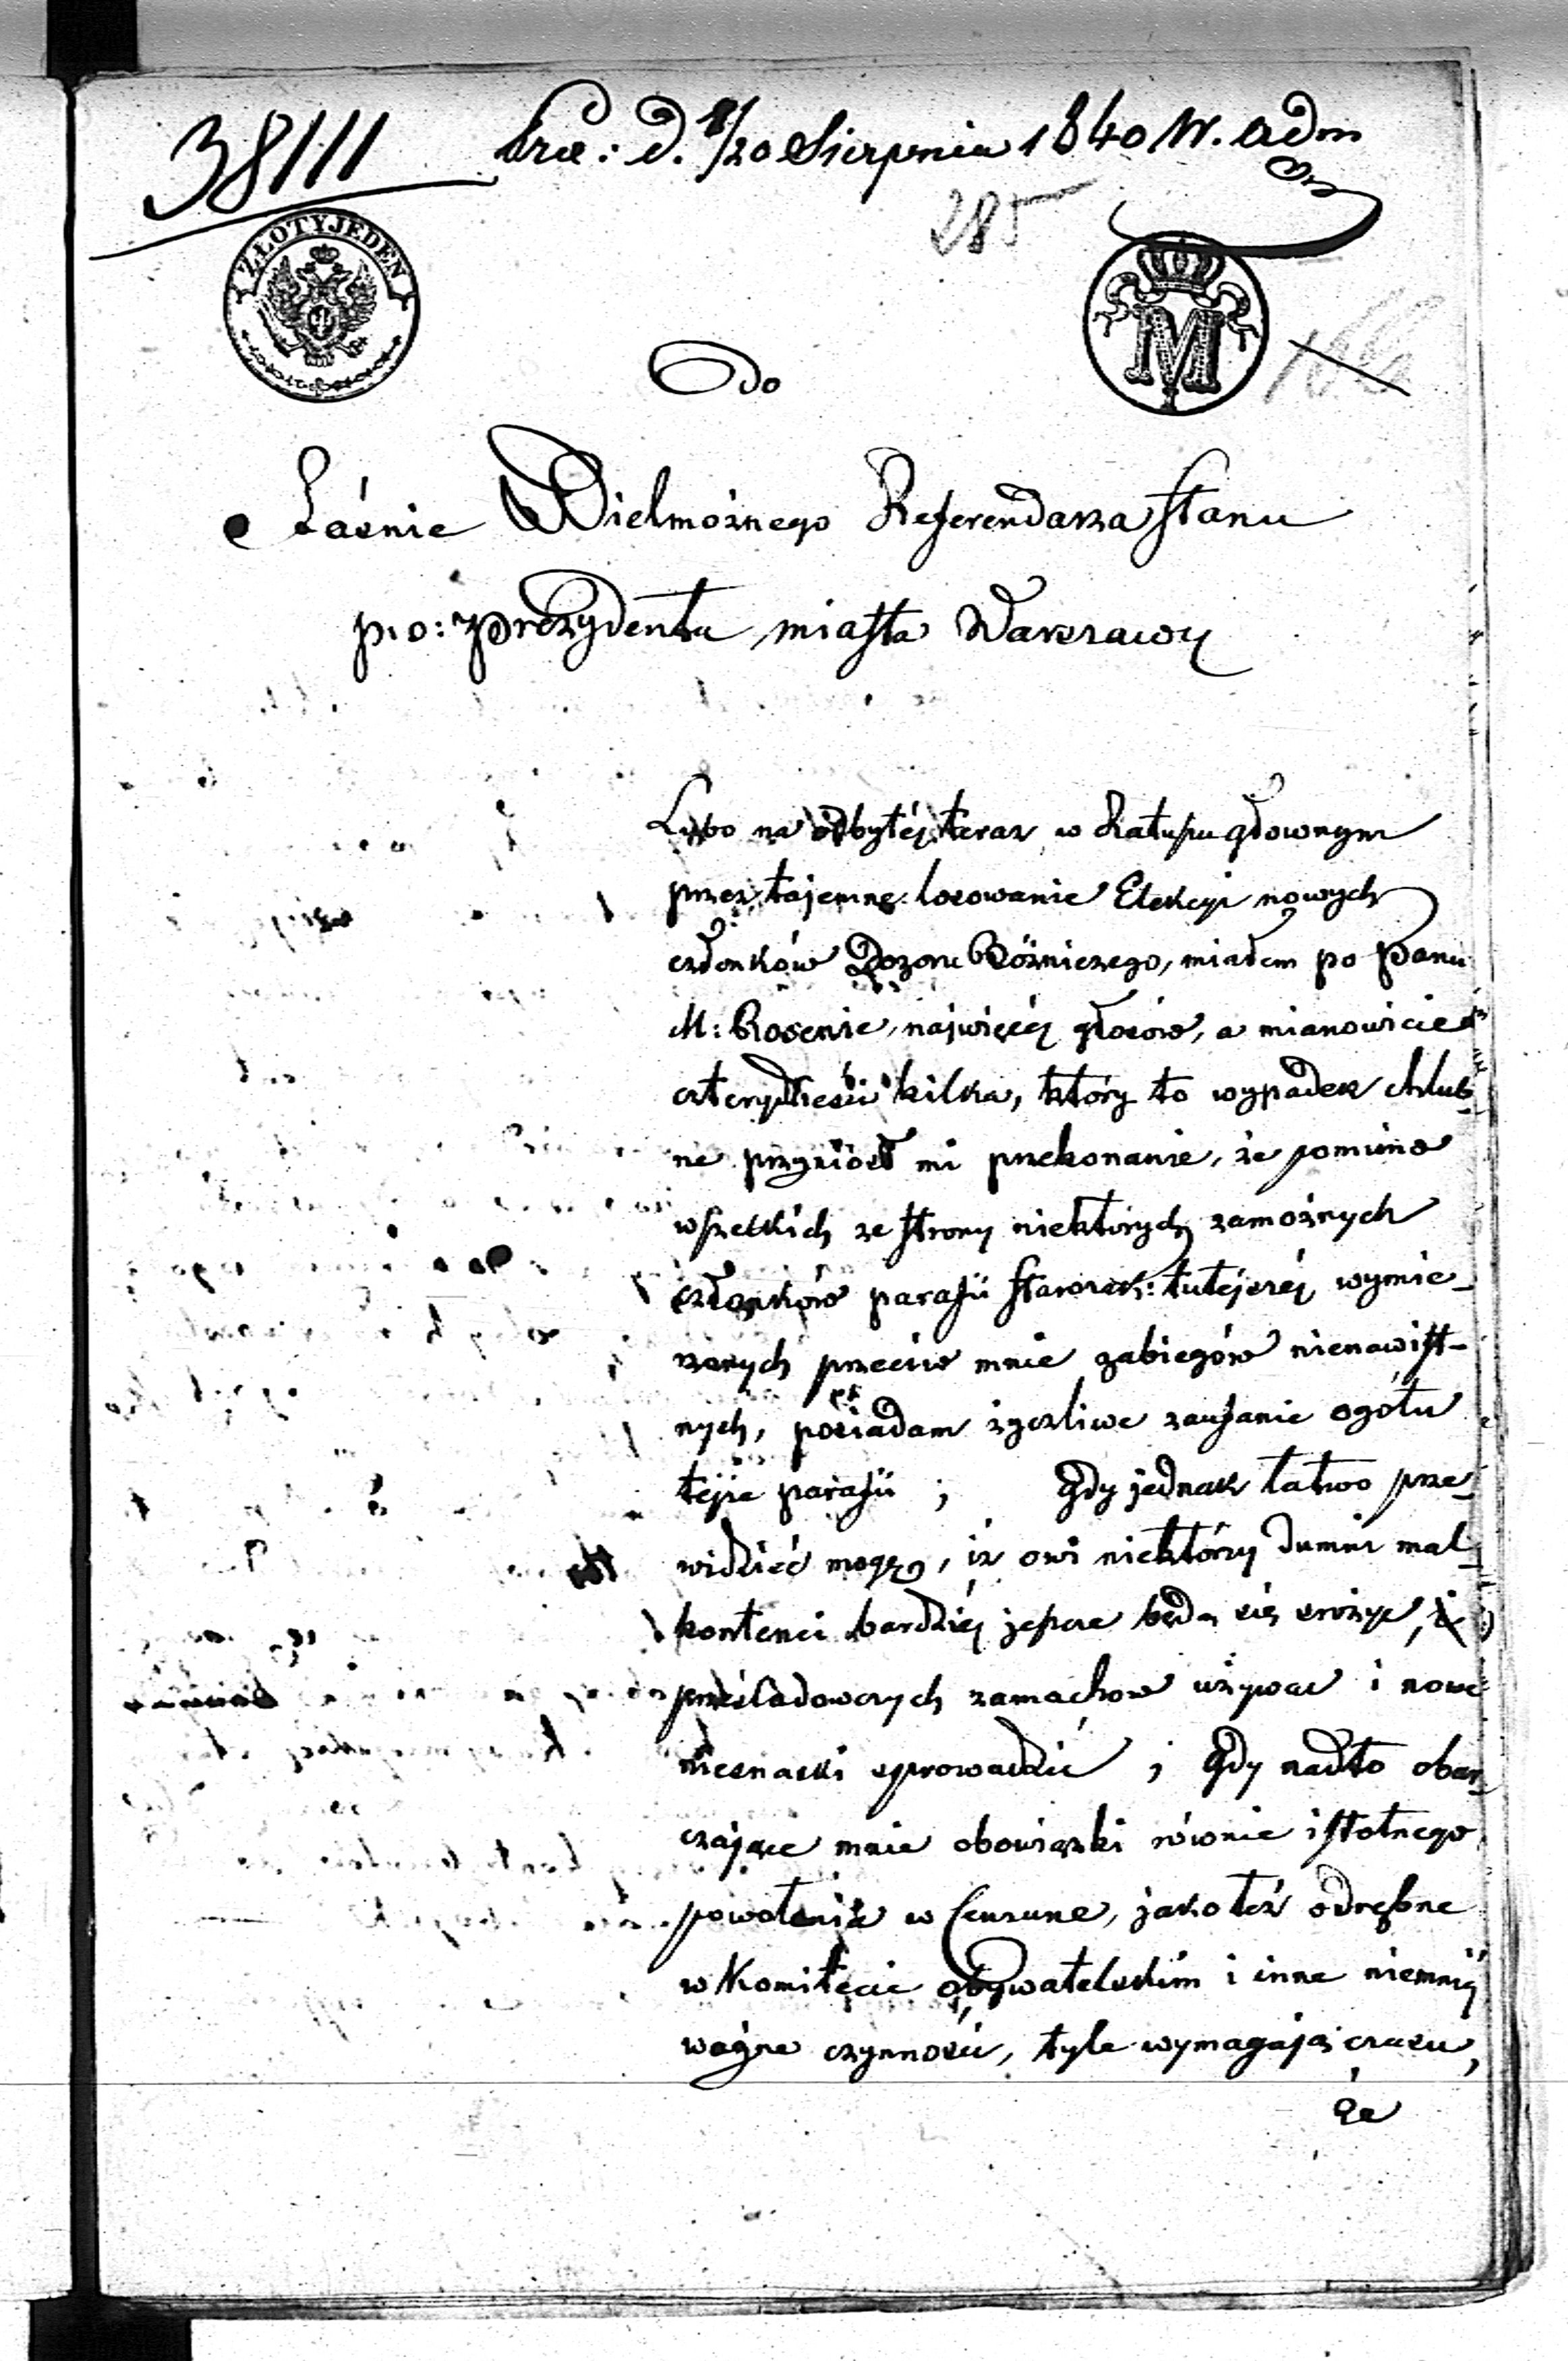 38111
Prez: d. 8/20 Sierpnia 1840 W. Adm
285
ZŁOTY JEDEN
M
Do
Jaśnie Wielmożnego Referendarza Stanu
p. o: Prezydenta miasta Warszawy
Lubo na odbytéj teraz w Ratuszu głownym
przez tajemne losowanie Elekcyi nowych
członków Dozoru Bóżniczego, miałem po Panu
M: Rosenie, najwięcéj głosów, a mianowicie
czterydzieści kilka, który to wypadek chlub-
ne przyniósł mi przekonanie, że pomimo
wszelkich ze strony niektórych zamożnych
członków parafii Starozak: tutejszéj wymie-
rzonych przeciw mnie zabiegów nienawist-
nych, posiadam życzliwe zaufanie ogółu
tejże parafii; Gdy jednak łatwo prze-
widzieć mogę, iż owi niektórzy dumni mal-
kontenci bardziéj jeszcze będą się srożyć, i
prześladowczych zamachow używac i nowe
niesnaski sprowadzić; Gdy nadto obar-
czające mnie obowiązki równie istotnego
powołania w Cenzurze, jako też odrębne
w Komitecie obywatelskim i inne niemniéj
ważne czynności, tyle wymagają czasu,
że